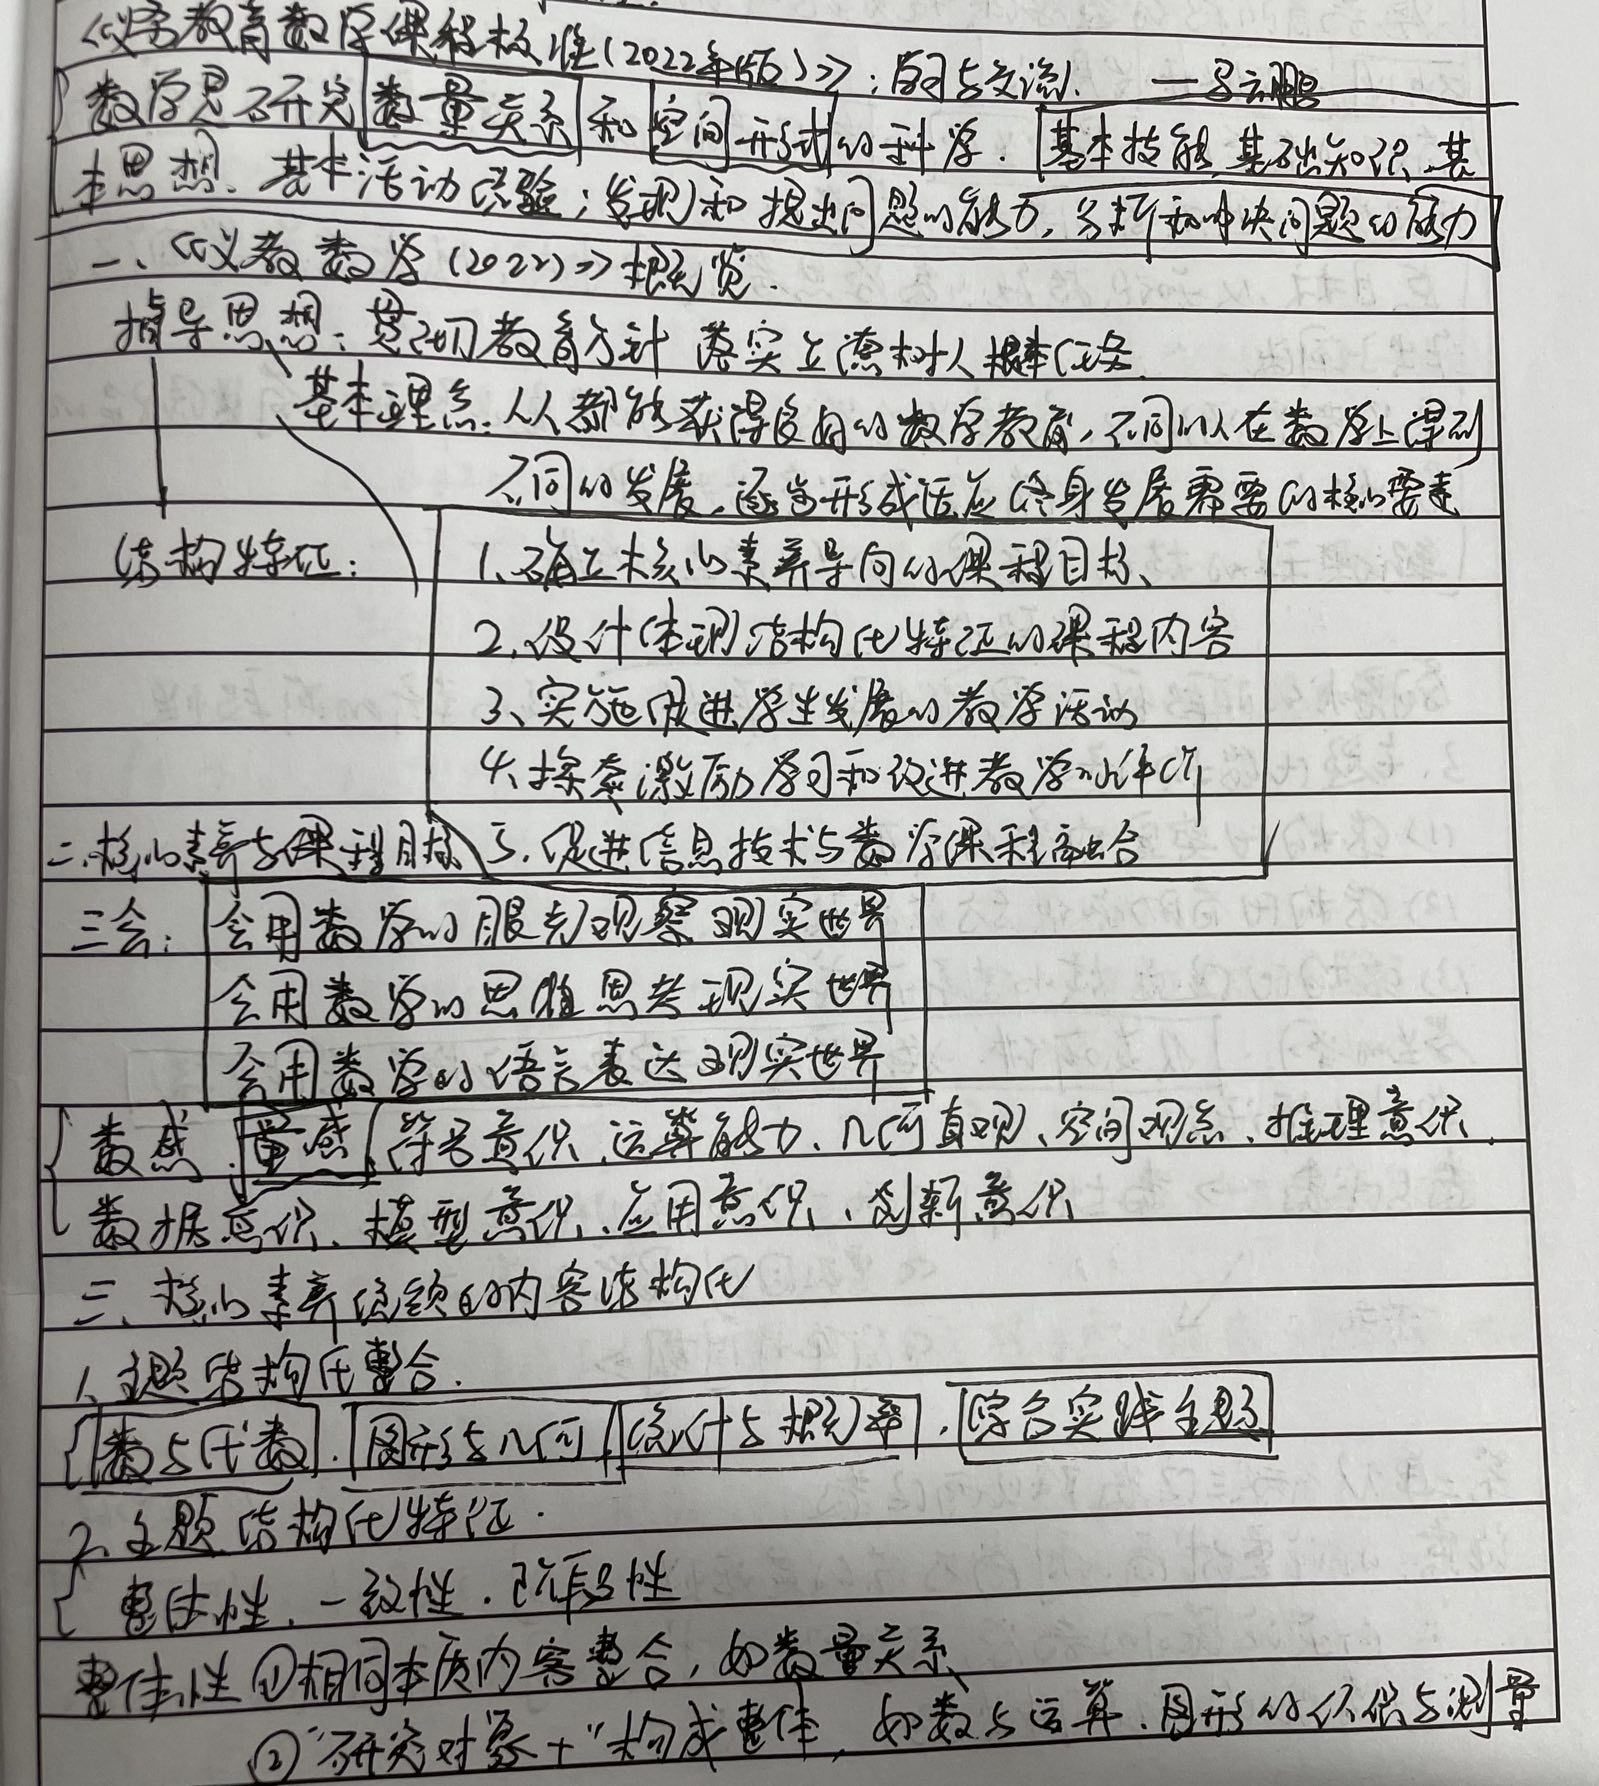 《义务教育数学课程标准(2022年版)》:学习与交流. —马云鹏
数学是研究数量关系和空间形式的科学.基本技能、基础知识、基
本思想、基本活动经验;发现和提出问题的能力,分析和解决问题的能力
一、《义教数学(2022)》概览.
指导思想:贯彻教育方针 落实立德树人根本任务.
基本理念:人人都能获得良好的数学教育,不同的人在数学上得到
不同的发展,逐步形成适应终身发展需要的核心素养
结构特征:
1、确立核心素养导向的课程目标、
2、设计体现结构化特征的课程内容
3、实施促进学生发展的教学活动
4、探索激励学习和改进教学的评价
二、核心素养与课程目标 5、促进信息技术与数学课程融合
三会:会用数学的眼光观察现实世界
会用数学的思维思考现实世界
会用数学的语言表达现实世界
数感、量感、符号意识、运算能力、几何直观、空间观念、推理意识、
数据意识、模型意识、应用意识、创新意识
三、核心素养统领的内容结构化
1、主题结构化整合.
数与代数、图形与几何、统计与概率、综合实践主题
2、主题结构化特征.
整体性、一致性、阶段性
整体性①相同本质内容整合,如数量关系
②"研究对象+"构成整体,如数与运算、图形的认识与测量